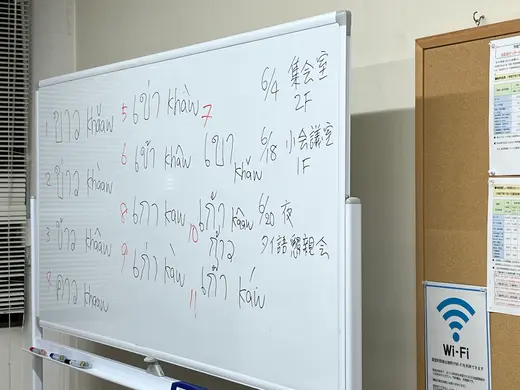 1 ขาว khǎaw
2 ข่าว khàaw
3 ข้าว khâaw
4 คาว khaaw
5 เข่า khàw
6 เข้า khâw
7
เขา khǎw
8 เกา kaw
9 เก่า kàw
10 เก้า kâaw
ก้าว
11 เก๊า káw
6/4 集会室
2F
6/18 小会議室
1F
6/20 夜
タイ語懇親会
Wi-Fi